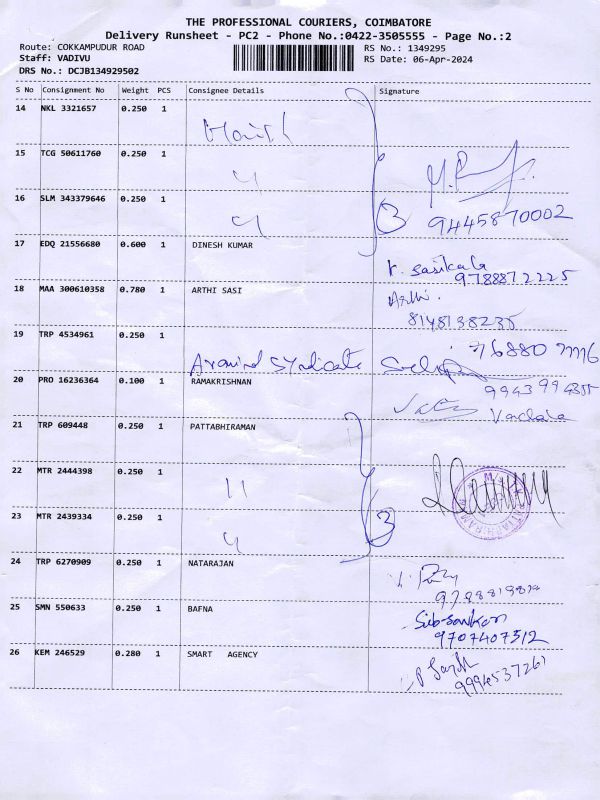 THE PROFESSIONAL COURIERS, COIMBATORE
Delivery Runsheet - PC2 - Phone No.:0422-3505555 - Page No.:2
Route: COKKAMPUDUR ROAD
RS No.: 1349295
Staff: VADIVU
RS Date: 06-Apr-2024
DRS No.: DCJB134929502
S No Consignment No Weight PCS Consignee Details Signature
14 NKL 3321657 0.250 1
15 TCG 50611760 0.250 1
16 SLM 343379646 0.250 1
3 9445870002
17 EDQ 21556680 0.600 1 DINESH KUMAR
r. Sasikala
9788872225
18 MAA 300610358 0.780 1 ARTHI SASI
Arthi.
8148138235
19 TRP 4534961 0.250 1
Aravind Syndicate
20 PRO 16236364 0.100 1 RAMAKRISHNAN
21 TRP 609448 0.250 1 PATTABHIRAMAN
22 MTR 2444398 0.250 1
11
23 MTR 2439334 0.250 1
3
24 TRP 6270909 0.250 1 NATARAJAN
25 SMN 550633 0.250 1 BAFNA
9707407512
26 KEM 246529 0.280 1 SMART AGENCY
9994537261